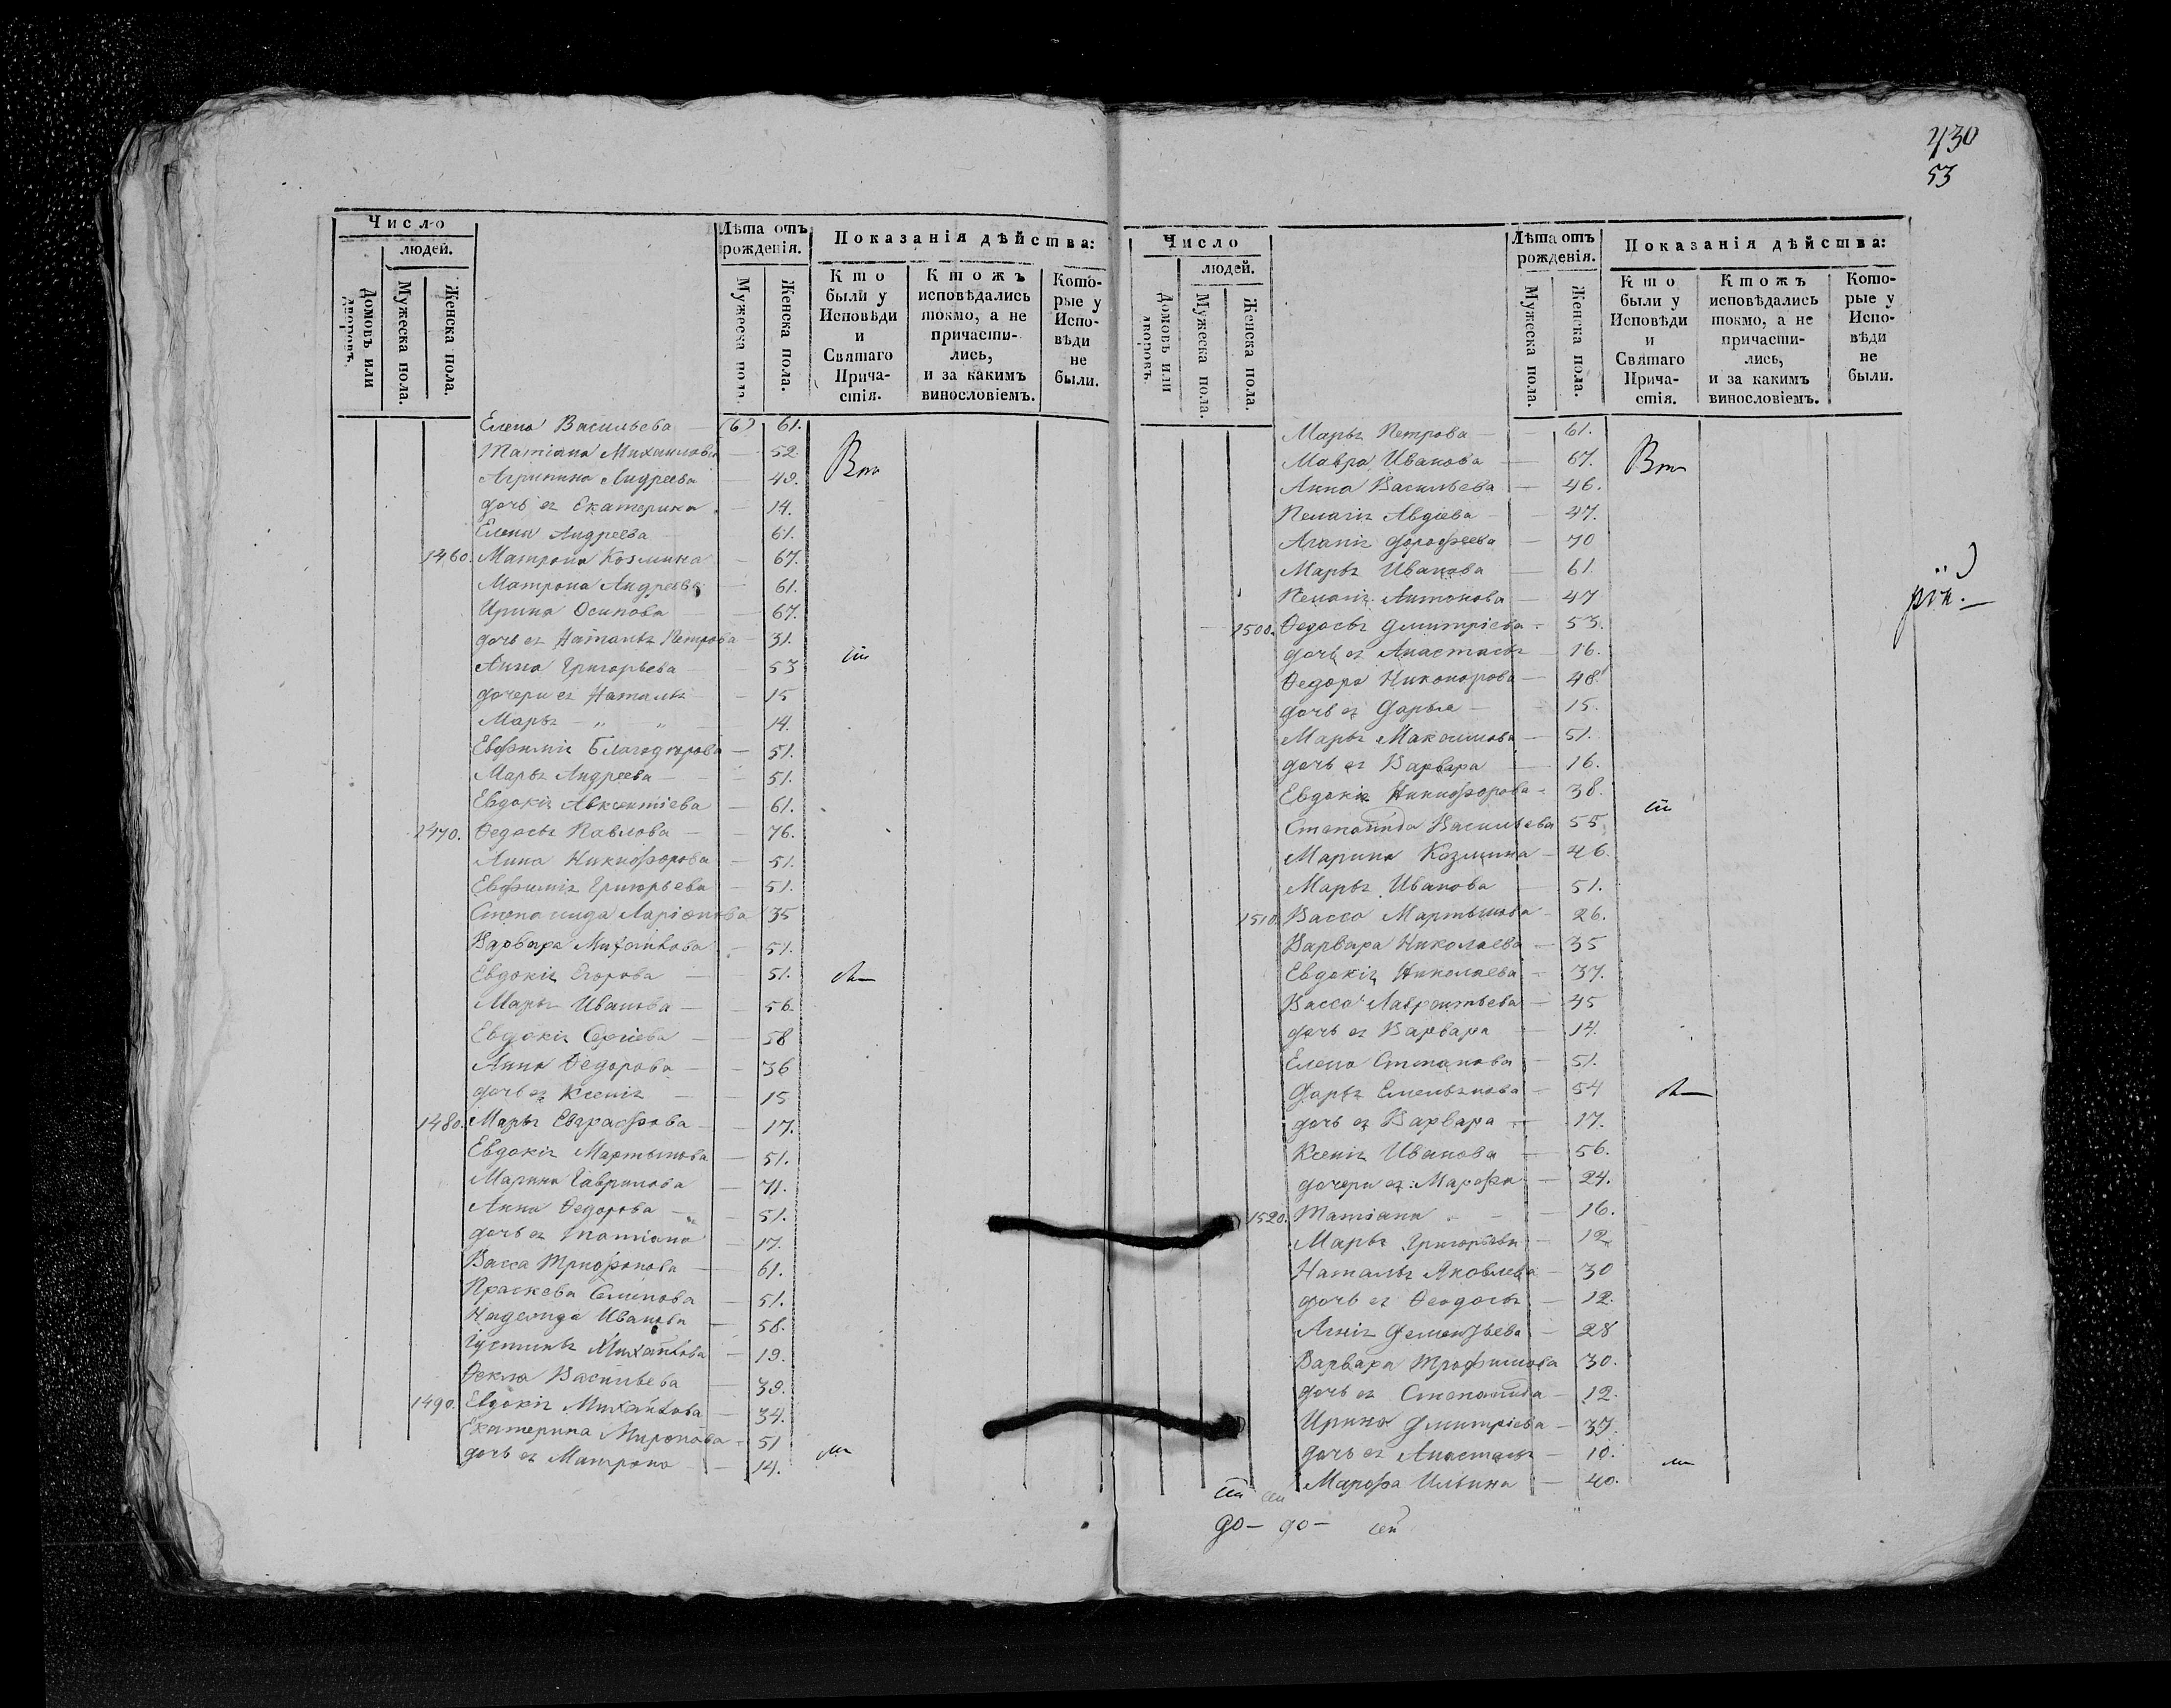 430
53
Число
людей.
Домовъ или дворовъ.
Мужеска пола.
Женска пола.
Лѣта отъ рожденія.
Мужеска пола.
Женска пола.
Показанія дѣйства:
Кто были у Исповѣди и Святаго Причастія.
Ктожъ исповѣдались токмо, а не причастились, и за какимъ винословіемъ.
Которые у Исповѣди не были.
Елена Васильева — 61.
Татіана Михаилова — 52.
Агрипина Андреева — 49.
дочь ея Екатерина — 14.
Елена Андреева 61.
1460. Матрона Козмина — 67.
Матрона Андреева 61.
Ирина Осипова — 67.
дочь ея Наталья Петрова — 31.
Анна Григорьева — 53
дочери ея Наталья — 15
Марья — „ „ — 14.
Евфимія — 51.
Марья Андреева — 51.
Евдокія Авксентіева — 61.
1470. Ѳедосья Павлова — 76.
Анна Никифорова — 51.
Евфимія Григорьева — 51.
Степанида Ларіонова 35
Варвара Михайлова — 51.
Евдокія Егорова — 51.
Марья Иванова — 56.
Евдокія Сергіева — 58
Анна Ѳедорова — 36
дочь ея Ксенія — 15
1480. Марья Евграфова — 17.
Евдокія Мартынова — 51.
Марина Гаврилова — 71.
Анна Ѳедорова — 51.
дочь ея Татіана — 17.
Васса Трифонова — 61.
Праскева Семенова — 51.
Надежда Иванова — 58.
Іустинья Михайлова — 19.
Ѳекла Васильева — 39.
1490. Евдокія Михайлова — 34.
Екатерина Миронова — 51
дочь ея Матрона — 14.
Число
людей.
Домовъ или дворовъ.
Мужеска пола.
Женска пола.
Лѣта отъ рожденія.
Мужеска пола.
Женска пола.
Показанія дѣйства:
Кто были у Исповѣди и Святаго Причастія.
Ктожъ исповѣдались токмо, а не причастились, и за какимъ винословіемъ.
Которые у Исповѣди не были.
Марья Петрова — 61.
Мавра Иванова — 67.
Анна Васильева — 46.
Пелагія Авдіева — 47.
Агапія Дорофеева — 70
Марья Иванова — 61.
Пелагія Антонова — 47
1500. Ѳедосья Дмитріева — 53.
дочь ея Анастасья — 16.
Ѳедора Никонорова — 48
дочь ея Дарья — 15.
Марья Максимова — 51.
дочь ея Варвара — 16.
Евдокія Никифорова — 38.
Степанида Васильева 55
Марина Козмина — 46.
Марья Иванова 51.
1510. Васса Мартынова — 26.
Варвара Николаева — 35
Евдокія Николаева — 37.
Васса Лаврентьева — 45
дочь ея Варвара — 14.
Елена Степанова — 51.
Дарья Емельянова — 54
дочь ея Варвара — 17.
Ксенія Иванова — 56.
дочери ея: Марфа — 24.
1520. Татіана — 16.
Марья Григорьева — 12
Наталья Яковлева — 30
дочь ея Ѳеодосья — 12.
Агнія Дементьева — 28
Варвара Трофимова 30.
дочь ея Степанида — 12.
Ирина Дмитріева — 37.
дочь ея Анастасья — 10.
Марфа Ильина — 40.